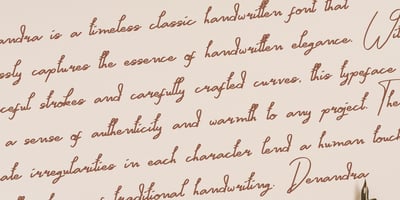 andra is a timeless classic handwritten font that
ssly captures the essence of handwritten elegance. Wit
ceful strokes and carefully crafted curves, this typeface
a sense of authenticity and warmth to any project. The
ate irregularities in each character lend a human touch
traditional handwriting. Denandra